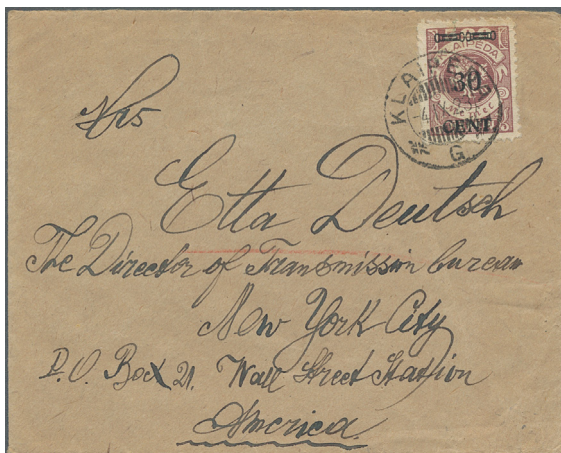 KLAIPĖDA
30
CENT.
KLAIPĖDA
-4.
G
Mrs
Etta Deutsch
The Director of Transmission bureau
New York City
P.O. Box 21. Wall Street Station
America.